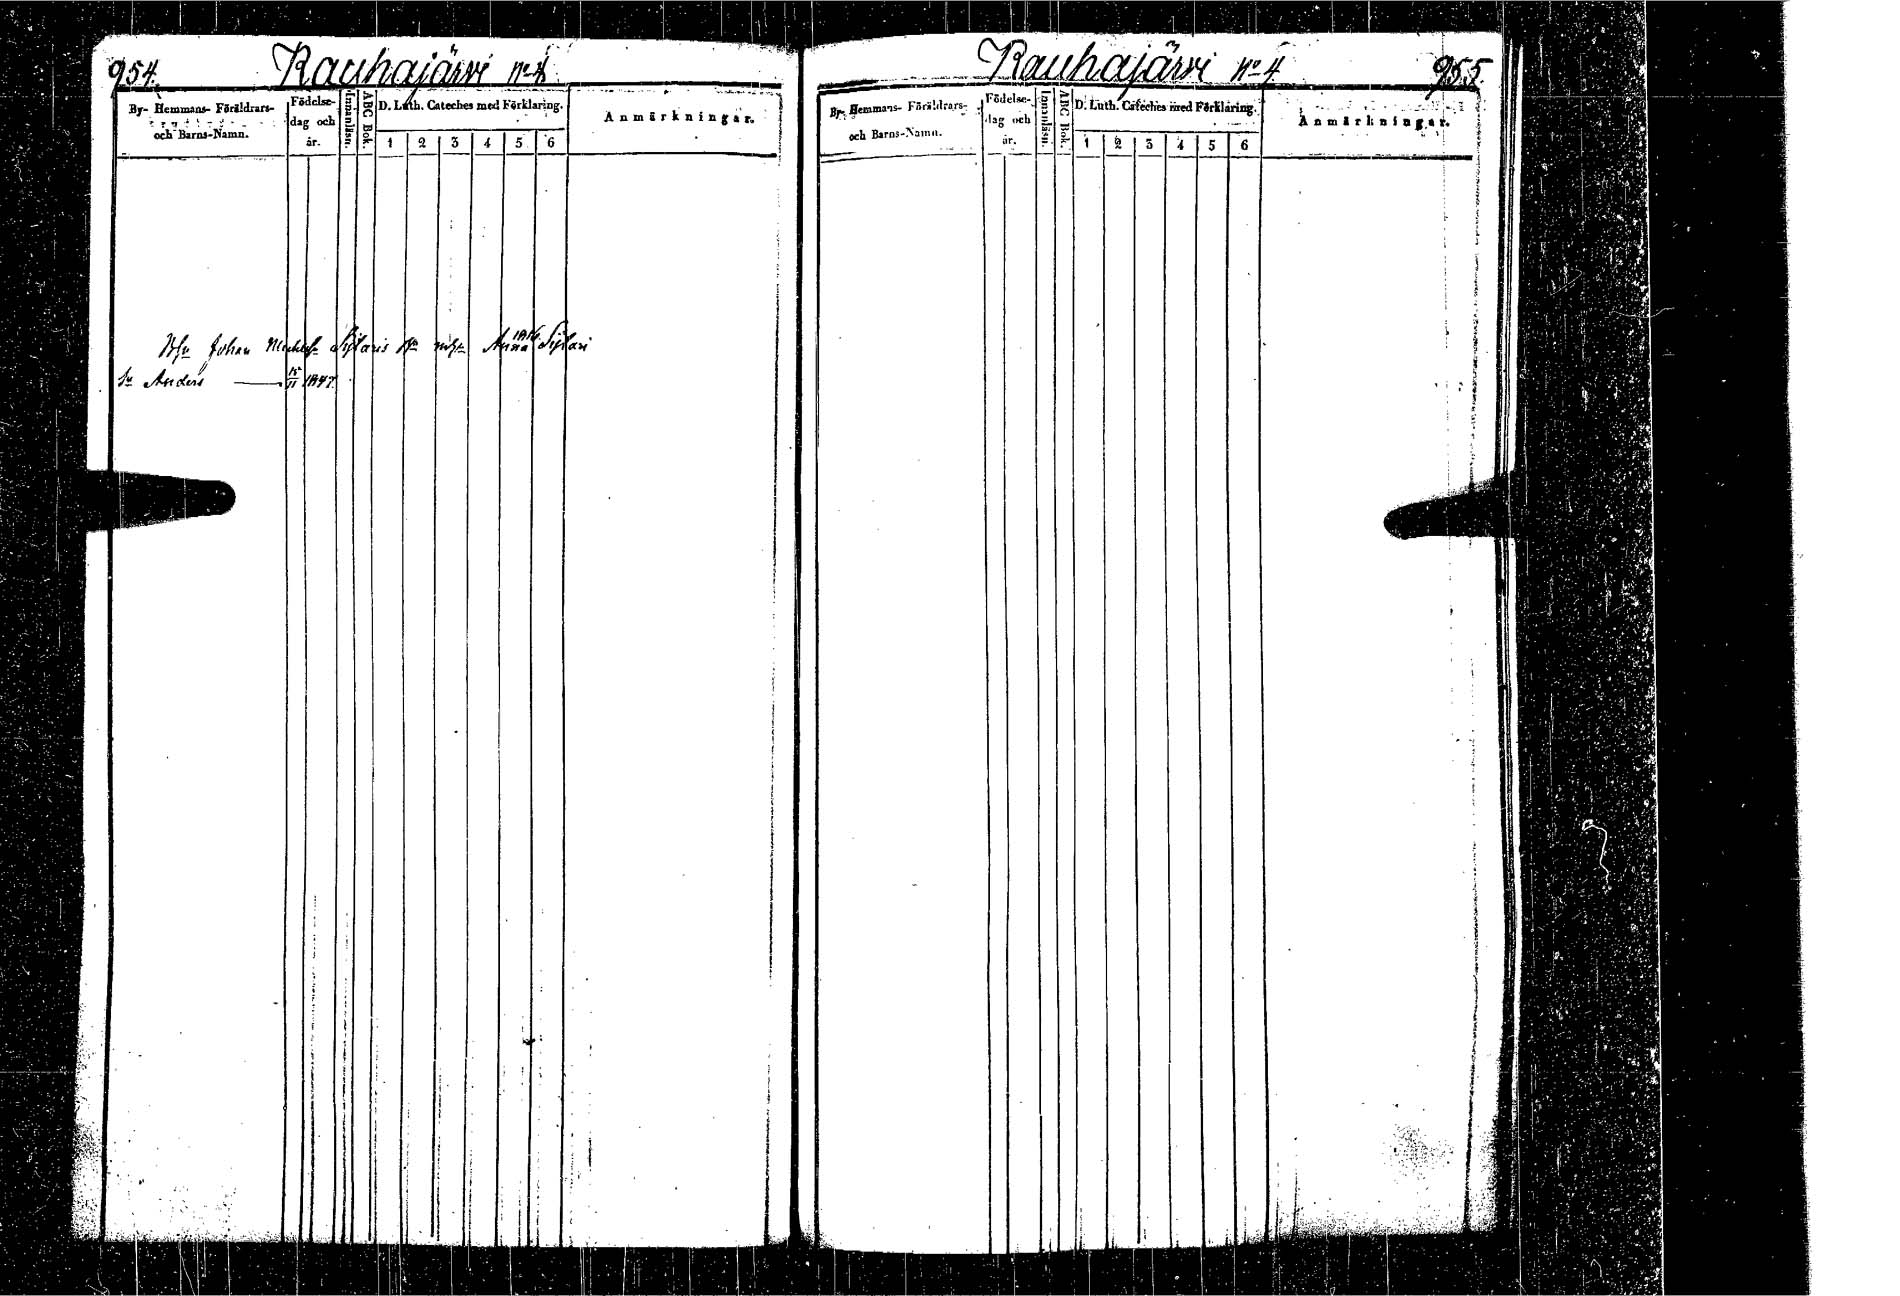 954.
Rauhajärvi No 4
By- Hemmans- Föräldrars-
och Barns-Namn.
Födelse-
dag och
år.
Innanläsn.
ABC Bok.
D. Luth. Cateches med Förklaring.
1 2 3 4 5 6
Anmärkningar.
Johan Sipilaris Anna Sipilari
Anders 15/11 1847
Rauhajärvi No 4
955.
By- Hemmans- Föräldrars-
och Barns-Namn.
Födelse-
dag och
år.
Innanläsn.
ABC Bok.
D. Luth. Cateches med Förklaring.
1 2 3 4 5 6
Anmärkningar.